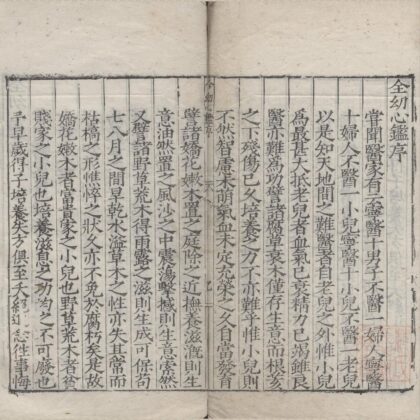 全幼心鑑序
嘗聞醫家有云寧醫十男子不醫一婦人寧醫
十婦人不醫一小兒寧醫十小兒不醫一老兒
以是知天地間之難醫者自老兒之外惟小兒
為最甚大抵老兒者血氣已衰精力已竭雖良
醫亦難為功譬諸腐草衰木僅存生意而根荄
之下殘傷已久培養之力不亦難乎惟小兒則
不然智慮未萌氣血未定充榮之久自當發育
譬諸嬌花嫩木置之庭除之近撫養滋溉則生
意油然置之風沙之中震蕩擊撼則生意索然
又譬諸野草荒木得雨露之滋則生成可保苟
七八月之間旱乾水溢草木之性亦失其常而
枯槁之形憔悴之狀久亦不免於腐朽矣是故
嬌花嫩木者富貴家之小兒也野草荒木者貧
賤家之小兒也培養滋息之功均之不可廢也
予早歲得子培養失方俱至夭
往事悔